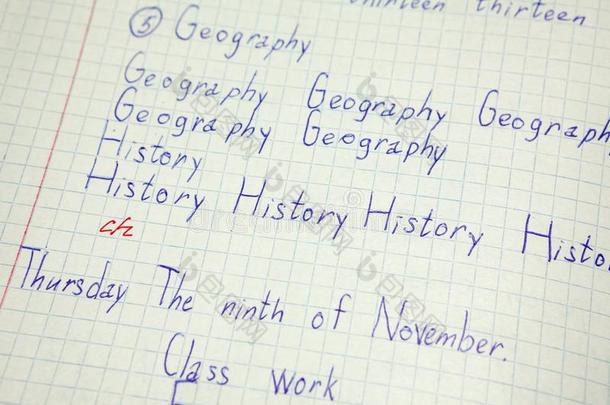 thirteen thirteen
⑤ Geography
Geography Geography Geograph
Geography Geography
History
History History History Histo
ch
Thursday The ninth of November.
Class Work